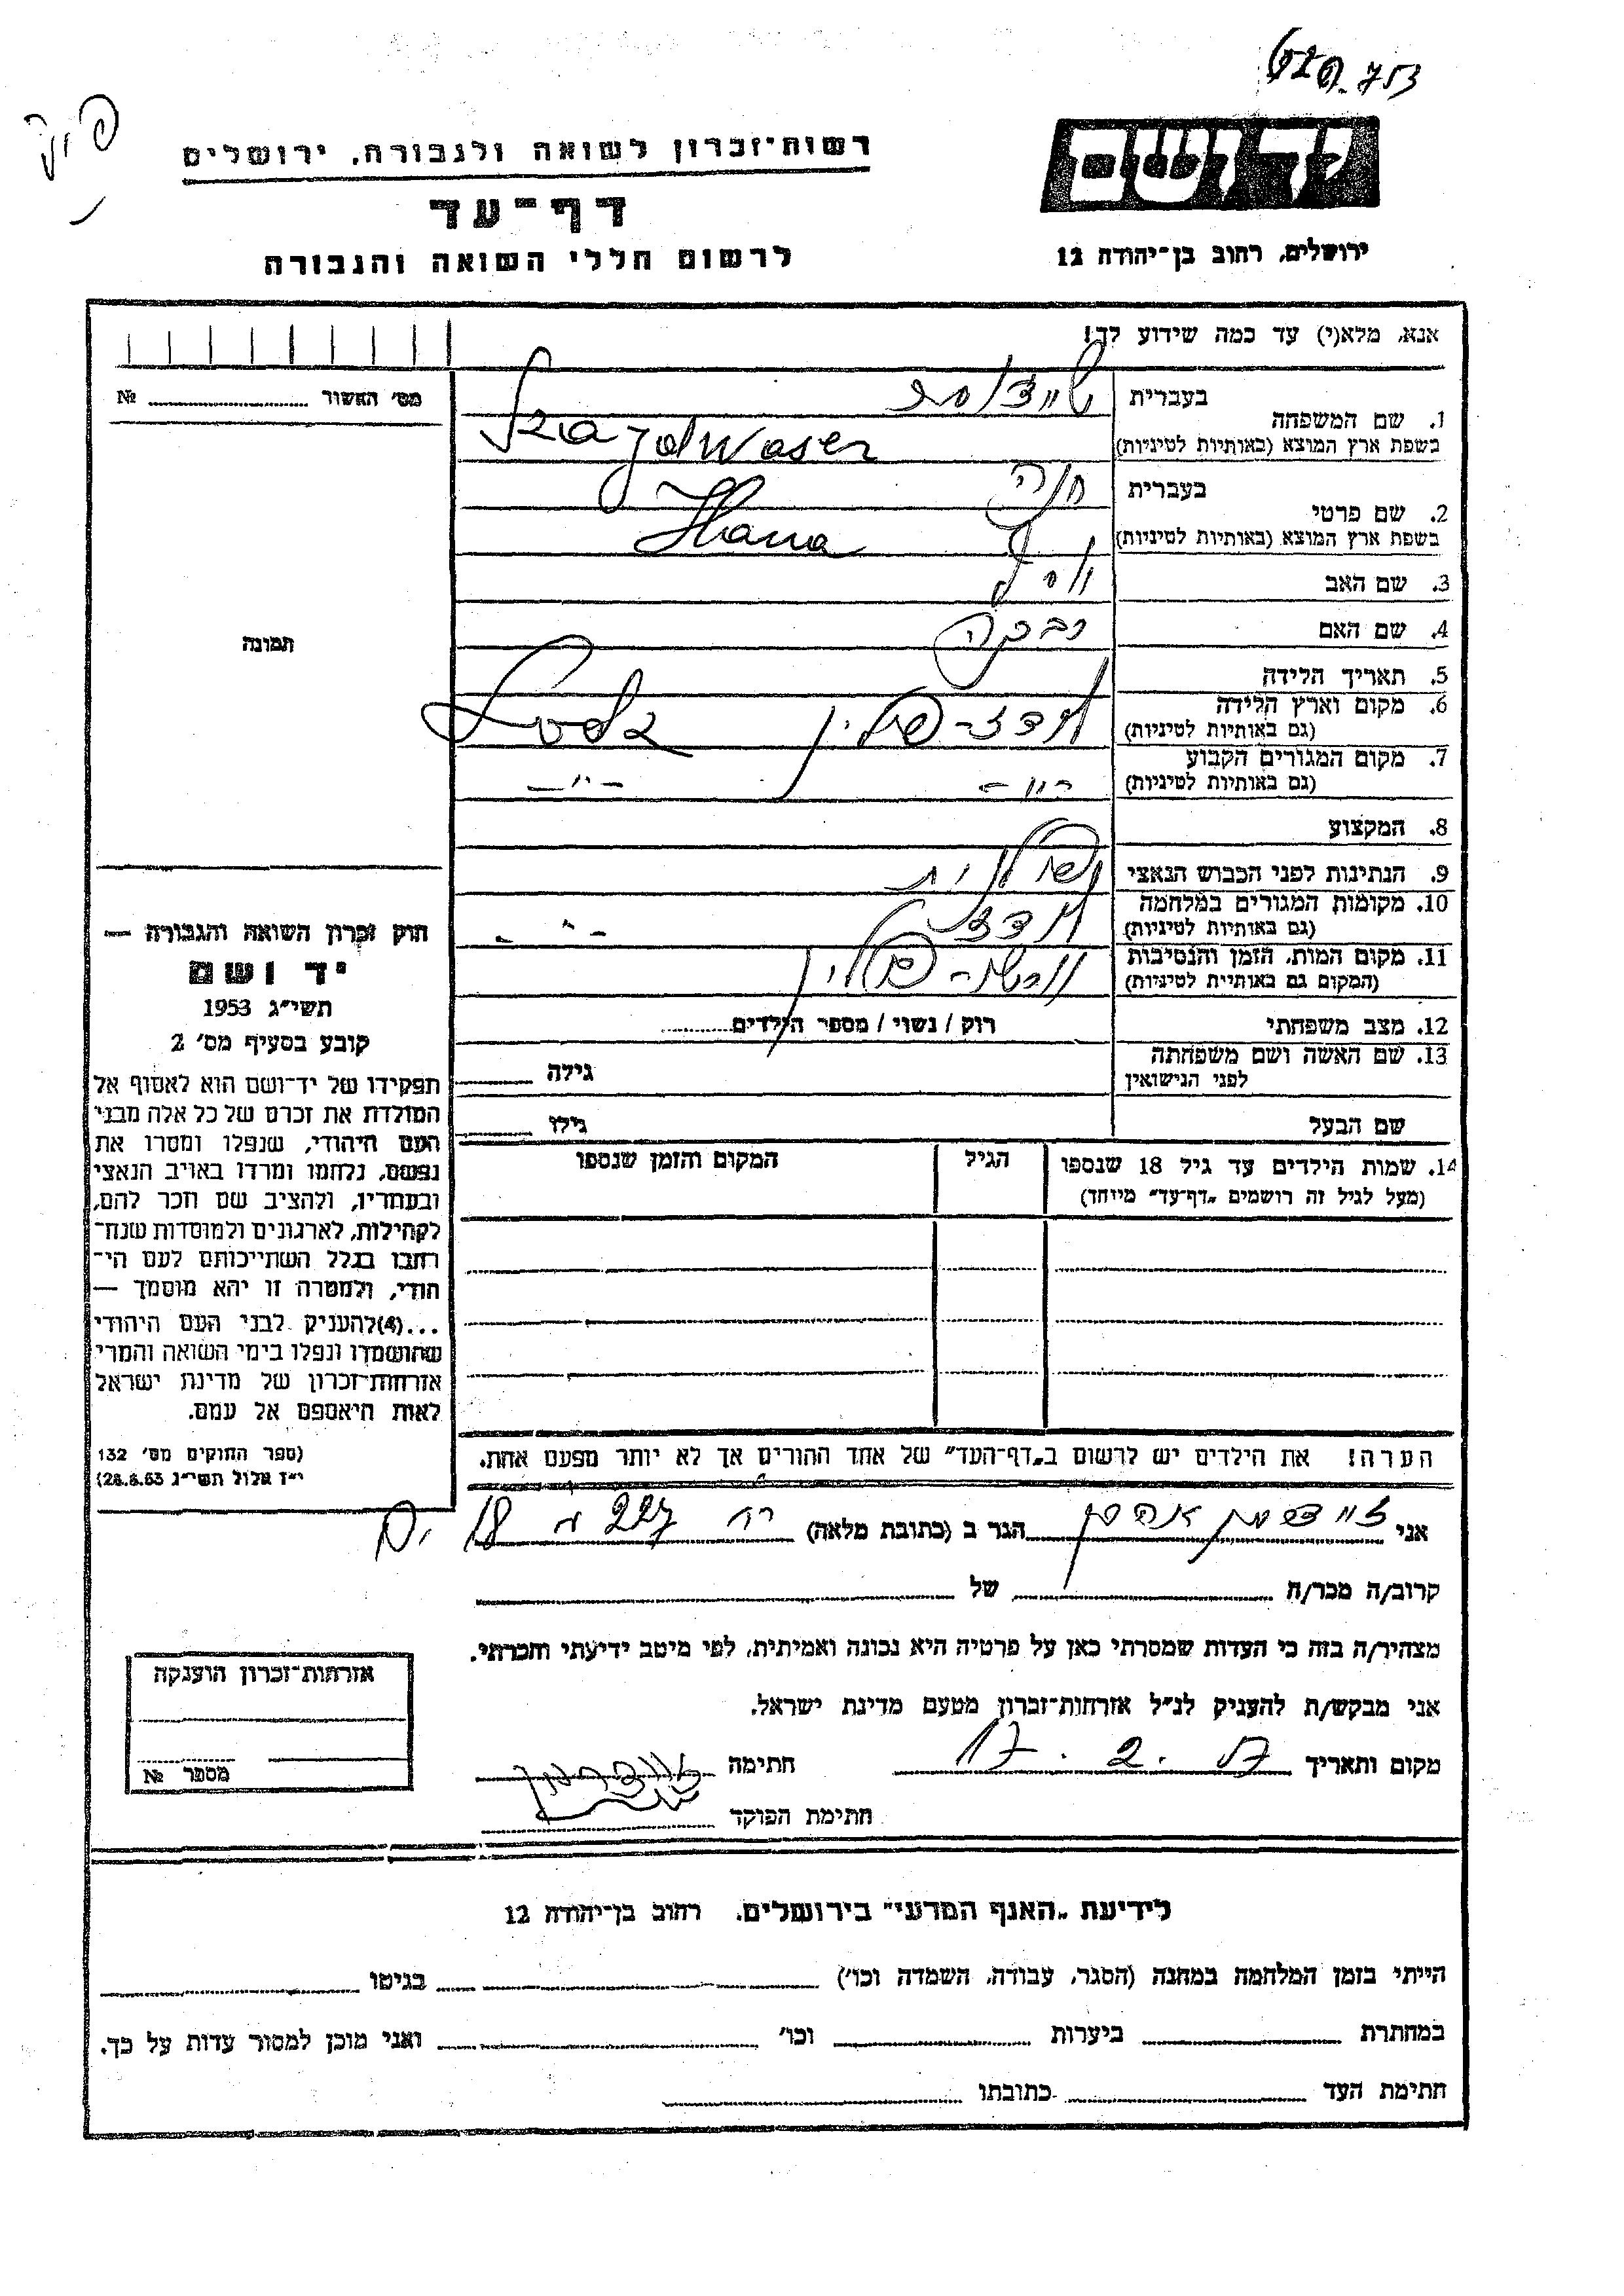 יד ושם
רשות־זכרון לשואה ולגבורה, ירושלים
דף־עד
לרשום חללי השואה והגבורה
ירושלים, רחוב בן־יהודה 12
אנא, מלא(י) עד כמה שידוע לך!
מס׳ האשור № 
1. שם המשפחה
בעברית
בשפת ארץ המוצא (באותיות לטיניות)
2. שם פרטי
בעברית חנה
בשפת ארץ המוצא (באותיות לטיניות) Hana
3. שם האב
4. שם האם רבקה
5. תאריך הלידה
6. מקום וארץ הלידה לודז־פולין
(גם באותיות לטיניות)
7. מקום המגורים הקבוע
(גם באותיות לטיניות)
8. המקצוע
9. הנתינות לפני הכבוש הנאצי פולנית
10. מקומות המגורים במלחמה לודז
(גם באותיות לטיניות)
11. מקום המות, הזמן והנסיבות
(המקום גם באותיות לטיניות)
12. מצב משפחתי רוק / נשוי / מספר הילדים
13. שם האשה ושם משפחתה גילה
לפני הנישואין
שם הבעל גילו
14. שמות הילדים עד גיל 18 שנספו הגיל המקום והזמן שנספו
(מעל לגיל זה רושמים „דף־עד״ מיוחד)
תמונה
חוק זכרון השואה והגבורה —
יד ושם
תשי״ג 1953
קובע בסעיף מס׳ 2
תפקידו של יד־ושם הוא לאסוף אל
המולדת את זכרם של כל אלה מבני
העם היהודי, שנפלו ומסרו את
נפשם, נלחמו ומרדו באויב הנאצי
ובעוזריו, ולהציב שם וזכר להם,
לקהילות, לארגונים ולמוסדות שנח־
רבו בגלל השתייכותם לעם הי־
הודי, ולמטרה זו יהא מוסמך —
...(4) להעניק לבני העם היהודי
שהושמדו ונפלו בימי השואה והמרי
אזרחות־זכרון של מדינת ישראל
לאות היאספם אל עמם.
(ספר החוקים מס׳ 132
י״ז אלול תשי״ג 28.8.53)
הערה! את הילדים יש לרשום ב„דף־העד״ של אחד ההורים אך לא יותר מפעם אחת.
אני הגר ב (כתובת מלאה)
קרוב/ה מכר/ה של
מצהיר/ה בזה כי העדות שמסרתי כאן על פרטיה היא נכונה ואמיתית, לפי מיטב ידיעתי והכרתי.
אני מבקש/ת להעניק לנ״ל אזרחות־זכרון מטעם מדינת ישראל.
מקום ותאריך 17. 2. 57 חתימה
חתימת הפוקד
אזרחות־זכרון הוענקה
מספר №
לידיעת „האגף המדעי״ בירושלים, רחוב בן־יהודה 12
הייתי בזמן המלחמה במחנה (הסגר, עבודה, השמדה וכו׳) בגיטו
במחתרת ביערות וכו׳ ואני מוכן למסור עדות על כך.
חתימת העד כתובתו